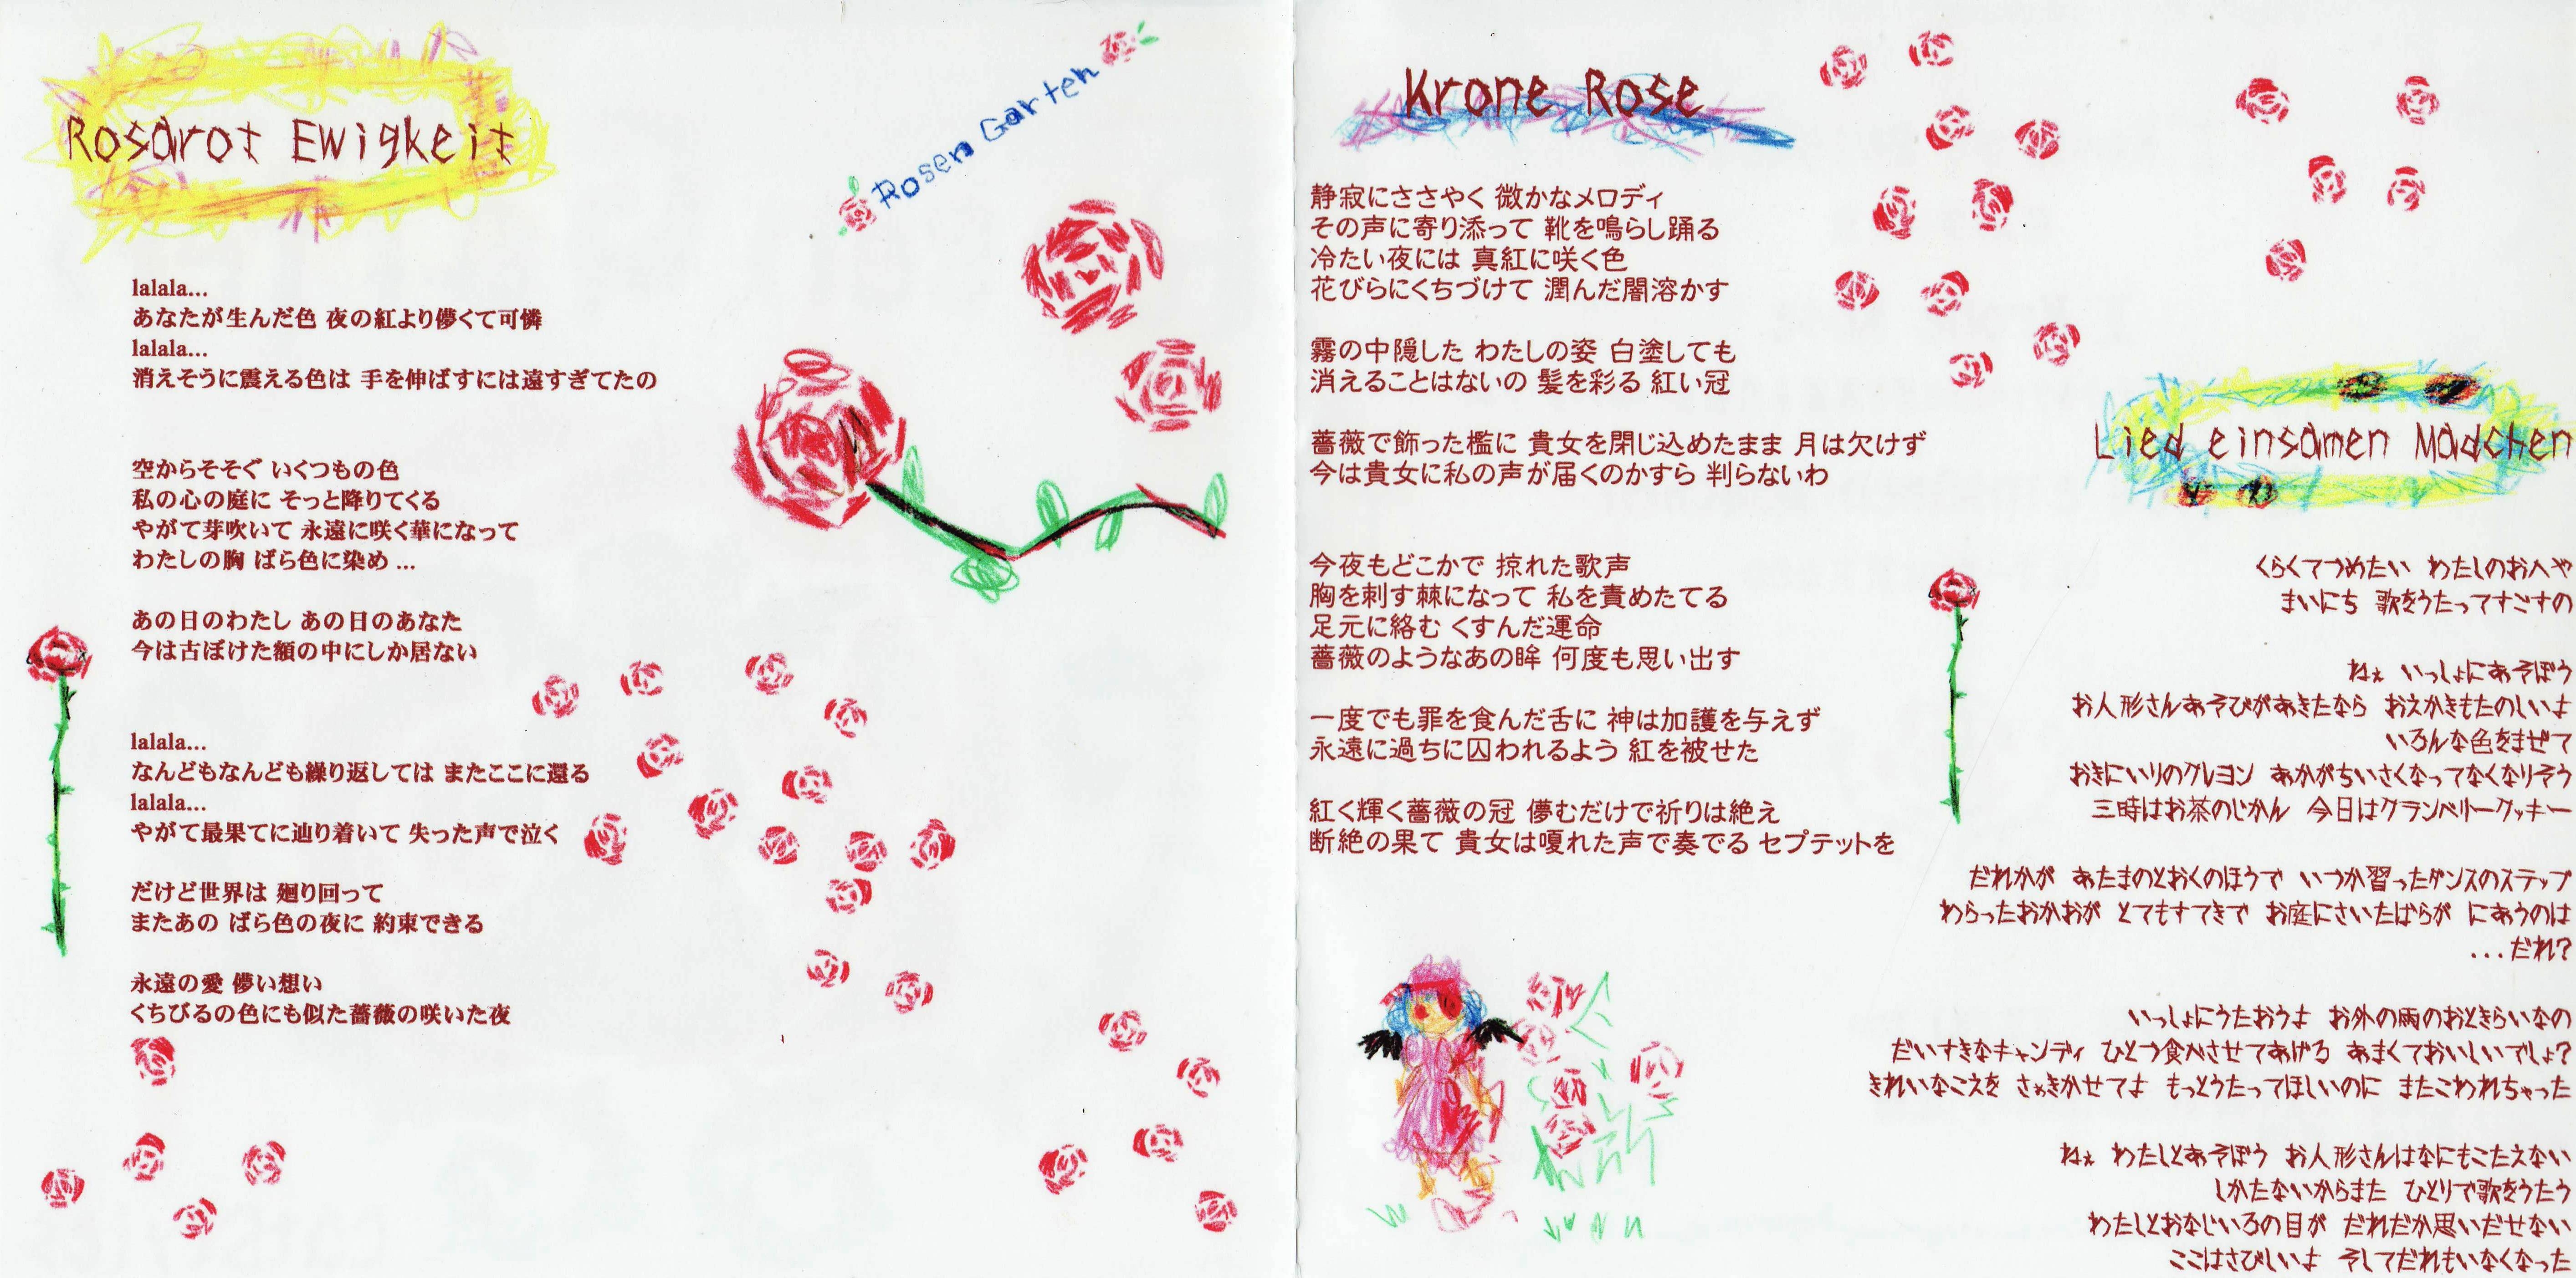 Rosarot Ewigkeit
Rosen Garten
lalala...
あなたが生んだ色 夜の紅より儚くて可憐
lalala...
消えそうに震える色は 手を伸ばすには遠すぎてたの
空からそそぐ いくつもの色
私の心の庭に そっと降りてくる
やがて芽吹いて 永遠に咲く華になって
わたしの胸 ばら色に染め ...
あの日のわたし あの日のあなた
今は古ぼけた額の中にしか居ない
lalala...
なんどもなんども繰り返しては またここに還る
lalala...
やがて最果てに辿り着いて 失った声で泣く
だけど世界は 廻り回って
またあの ばら色の夜に 約束できる
永遠の愛 儚い想い
くちびるの色にも似た薔薇の咲いた夜
Krone Rose
静寂にささやく 微かなメロディ
その声に寄り添って 靴を鳴らし踊る
冷たい夜には 真紅に咲く色
花びらにくちづけて 潤んだ闇溶かす
霧の中隠した わたしの姿 白塗しても
消えることはないの 髪を彩る 紅い冠
薔薇で飾った檻に 貴女を閉じ込めたまま 月は欠けず
今は貴女に私の声が届くのかすら 判らないわ
今夜もどこかで 掠れた歌声
胸を刺す棘になって 私を責めたてる
足元に絡む くすんだ運命
薔薇のようなあの眸 何度も思い出す
一度でも罪を食んだ舌に 神は加護を与えず
永遠に過ちに囚われるよう 紅を被せた
紅く輝く薔薇の冠 儚むだけで祈りは絶え
断絶の果て 貴女は嗄れた声で奏でる セプテットを
Lied einsamen Madchen
くらくてつめたい わたしのおへや
まいにち 歌をうたってすごすの
ねぇ いっしょにあそぼう
お人形さんあそびがあきたなら おえかきもたのしいよ
いろんな色をまぜて
おきにいりのクレヨン あかがちいさくなってなくなりそう
三時はお茶のじかん 今日はクランベリークッキー
だれかが あたまのとおくのほうで いつか習ったダンスのステップ
わらったおかおが とてもすてきで お庭にさいたばらが にあうのは
...だれ?
いっしょにうたおうよ お外の雨のおときらいなの
だいすきなキャンディ ひとつ食べさせてあげる あまくておいしいでしょ?
きれいなこえを さぁきかせてよ もっとうたってほしいのに またこわれちゃった
ねぇ わたしとあそぼう お人形さんはなにもこたえない
しかたないからまた ひとりで歌をうたう
わたしとおなじいろの目が だれだか思いだせない
ここはさびしいよ そしてだれもいなくなった